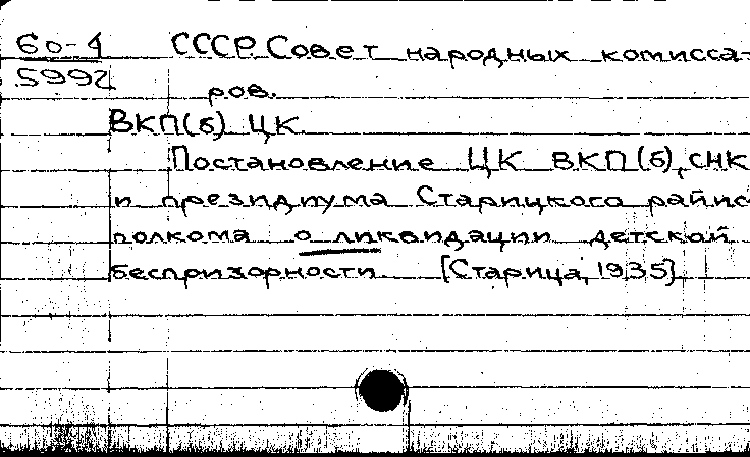 60-4 СССР. Совет народных комисса-
5992 ров.
ВКП(б) ЦК.
Постановление ЦК ВКП(б), СНК
и президиума Старицкого райис
полкома о ликвидации детской
беспризорности. [Старица, 1935]